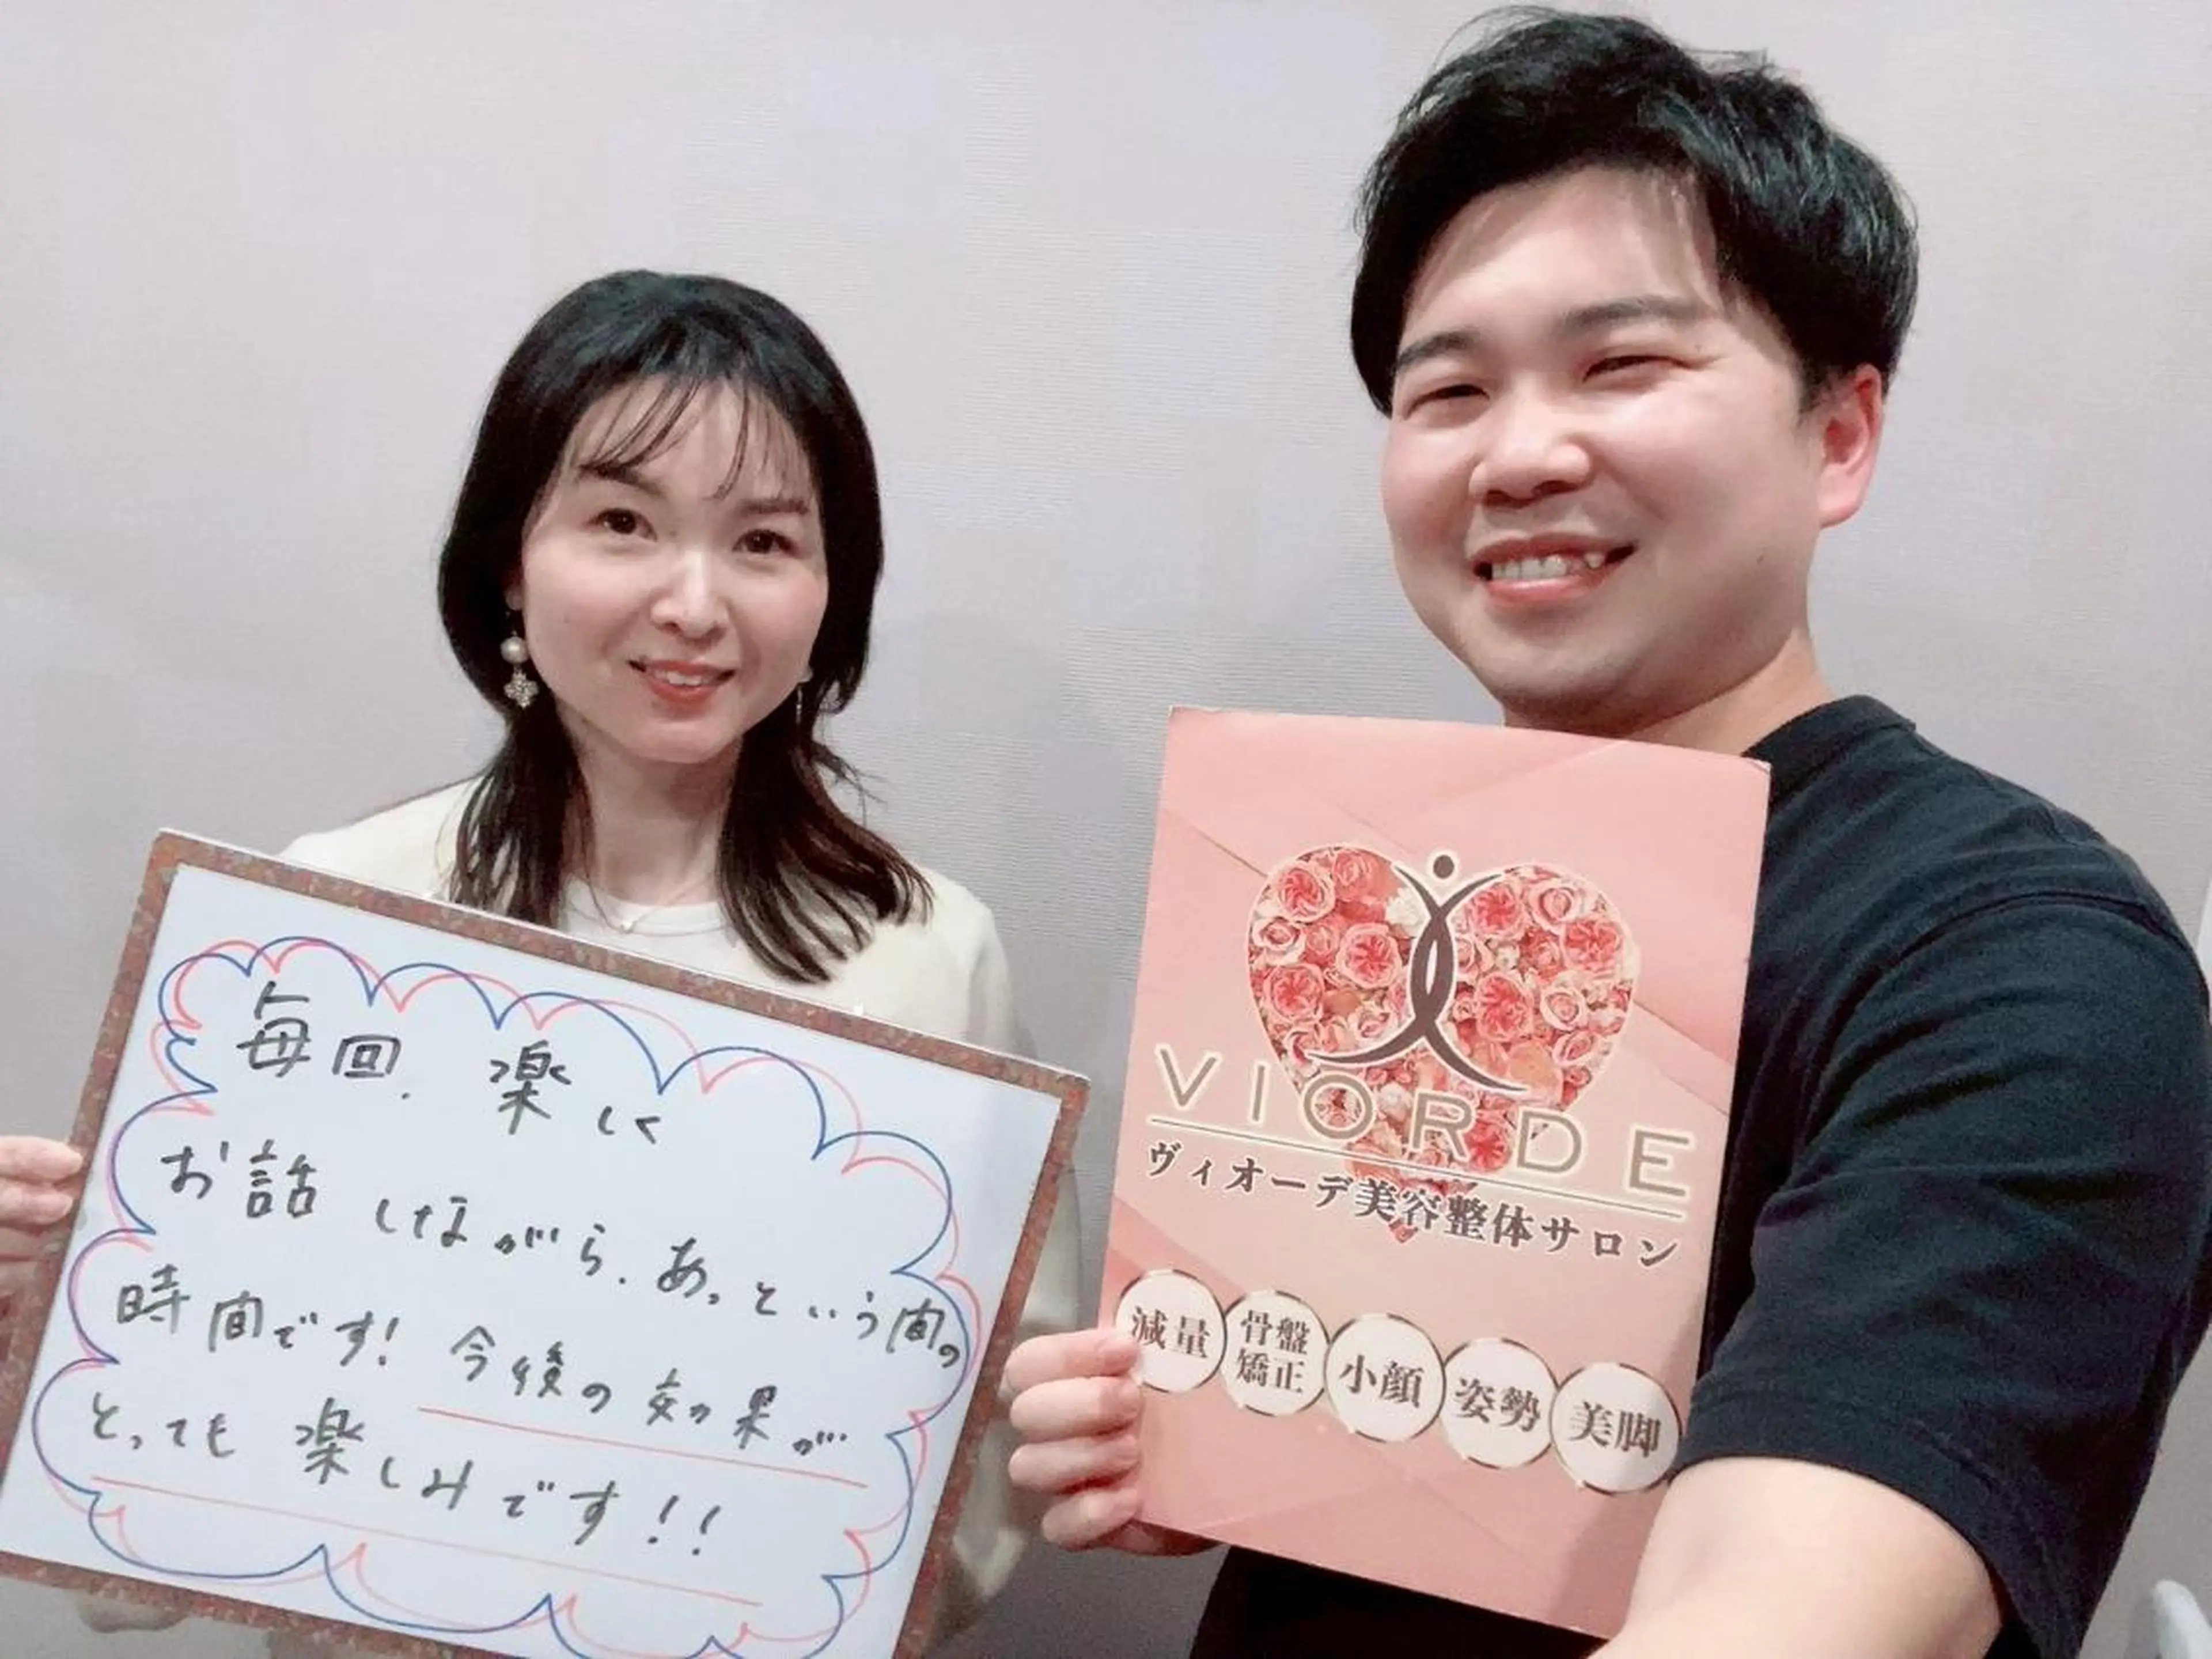 毎回、楽しく
お話しながら、あっという間の
時間です!今後の効果が
とっても楽しみです!!
VIORDE
ヴィオーデ美容整体サロン
減量
骨盤
矯正
小顔
姿勢
美脚